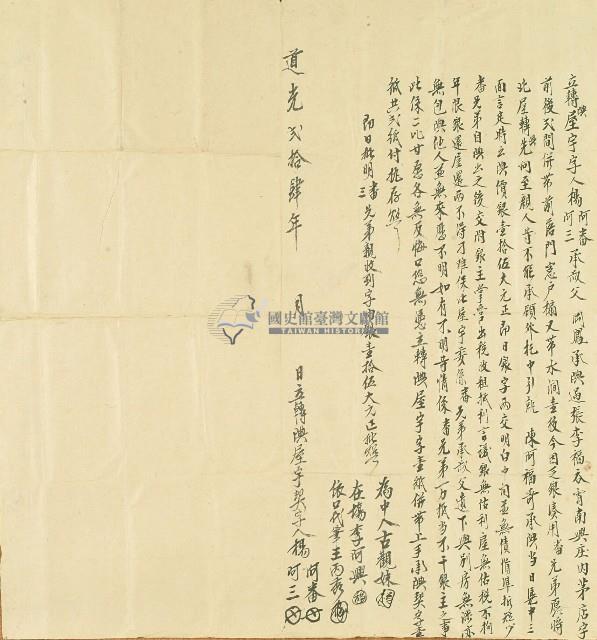 立轉典屋宇字人楊阿番阿三承叔父 開鳳承典過張李福吞霄南興庄內茅店字
前後弍間併帶前簷門窓戶橺又帶水涧壹後今因乏銀湊用番兄弟愿將
此屋轉典先問至親人等不能承領外托中引就 陳阿福哥承典當日憑中三
面言定時出典價銀壹拾伍大元正即日銀字兩交明白中間並無債貨準折短少
番兄弟自典出之後交附銀主掌管出稅收租抵利言議銀無估利屋無估稅不拘
年限銀還屋還兩不得刁難保此屋宇委係番兄弟承叔父遺下與別房無涉亦
無包典他人並無來歷不明如有不明等情係番兄弟一力抵當不干銀主之事
此係二比甘愿各無反悔口恐無憑立轉典屋宇字壹紙併帶上手承典契字壹
紙共弍紙付執存炤
即日批明番三兄弟親收到字內銀壹拾伍大元正批炤
為中人古觀妹
在場李阿興
依口代筆王丙
道光弍拾肆年 月 日立轉典屋宇契字人楊阿番阿三
國史館臺灣文獻館
TAIWAN HISTORICA